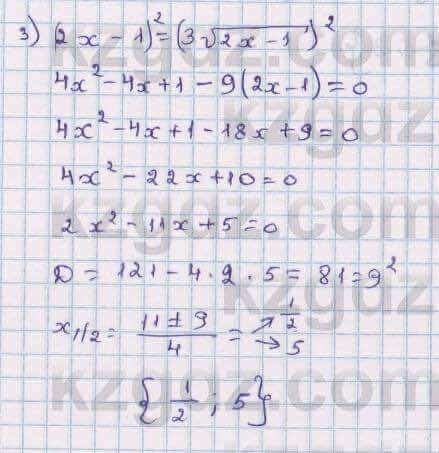 3) (2x - 1)² = (3√(2x - 1))²
4x² - 4x + 1 - 9(2x - 1) = 0
4x² - 4x + 1 - 18x + 9 = 0
4x² - 22x + 10 = 0
2x² - 11x + 5 = 0
D = 121 - 4 · 2 · 5 = 81 = 9²
x₁/₂ = (11 ± 9)/4 = ↗ 1/2 → 5
{1/2 ; 5}
kzgdz.com
kzgdz.com
kzgdz.com
kzgdz.com